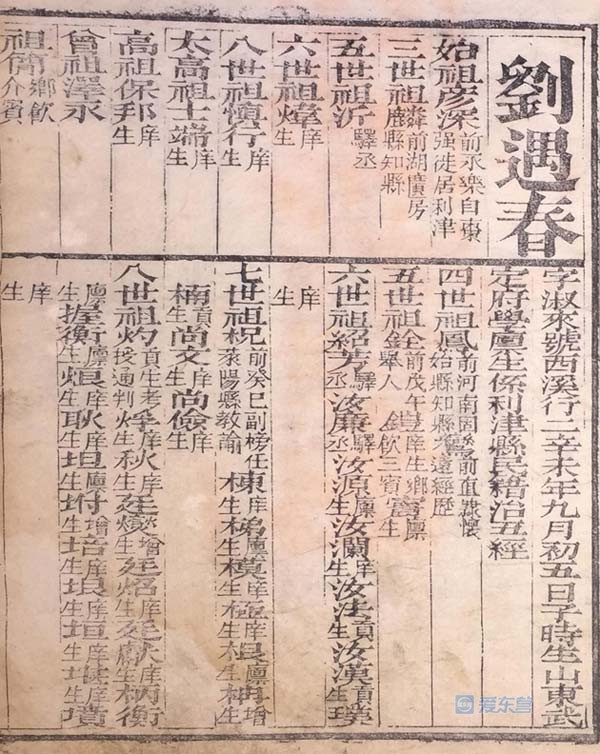 劉遇春
字淑來號西溪行二辛未年九月初五日子時生山東武
定府學廩生係利津縣民籍治五經
始祖彥深前永樂自棗強徙居利津
三世祖麟前湖廣房縣知縣
五世祖沂驛丞
六世祖煒庠生
八世祖慎行庠生
太高祖士端庠生
高祖保邦庠生
曾祖澤永
祖俏鄉飲介賓
四世祖鳳前河南固始縣知縣鸞前直隸懷遠經歷
五世祖前戊午舉人庠生鄉飲三賓廩生
六世祖紹芳驛丞汝廉驛丞汝源廩生汝瀾庠生汝法貢生汝漢貢生璞
庠生
七世祖柷前癸巳副榜任萊陽縣教諭棟庠生梯廩生模庠生庠生廩生增生
楠貢生尚文庠生尚儉庠生
八世祖灼貢生考授通判庠生秋庠生增生庠生庠生柄衡
廩生握衡廩生焜庠生耿庠生坦廩生增生培庠生垠庠生垣庠生庠生
庠生
爱东营